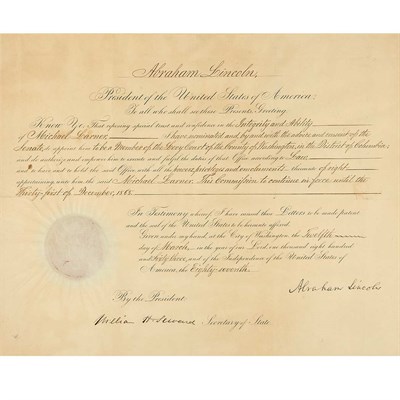 Abraham Lincoln,
President of the United States of America,
To all who shall see these Presents, Greeting:
Know Ye, That reposing special trust and confidence in the Integrity and Ability
of Michael Larner, I have nominated, and by and with the advice and consent of the
Senate, do appoint him to be a Member of the Levy Court of the County of Washington, in the District of Columbia,
and do authorize and empower him to execute and fulfil the duties of that Office according to Law
and to have and to hold the said Office, with all the powers, privileges and emoluments thereunto of right
appertaining unto him the said Michael Larner. This Commission to continue in force until the
first of December,
In Testimony whereof I have caused these Letters to be made patent
and the seal of the United States to be hereunto affixed.
Given under my hand, at the City of Washington, the Twelfth
day of March, in the year of our Lord one thousand eight hundred
and Sixty three, and of the Independence of the United States of
America, the Eighty-seventh.
Abraham Lincoln
By the President:
William H. Seward Secretary of State.